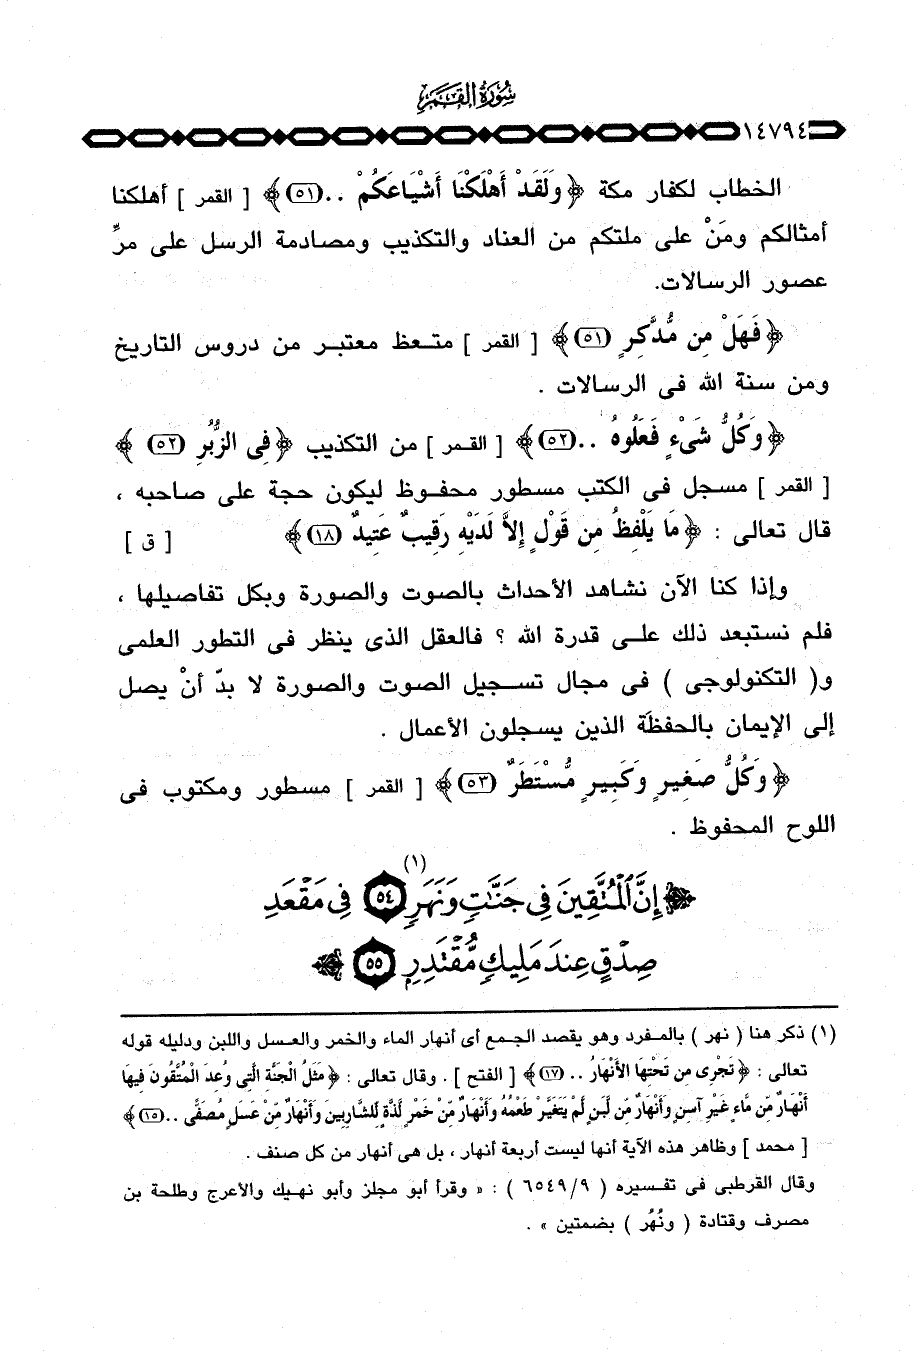 سُورَةُ القَمَرِ
١٤٧٩٤
الخطاب لكفار مكة ﴿وَلَقَدْ أَهْلَكْنَا أَشْيَاعَكُمْ .. (٥١)﴾ [ القمر ] أهلكنا
أمثالكم ومَنْ على ملتكم من العناد والتكذيب ومصادمة الرسل على مرِّ
عصور الرسالات.
﴿فَهَلْ مِن مُّدَّكِرٍ (٥١)﴾ [ القمر ] متعظ معتبر من دروس التاريخ
ومن سنة الله فى الرسالات .
﴿وَكُلُّ شَىْءٍ فَعَلُوهُ .. (٥٢)﴾ [ القمر ] من التكذيب ﴿فِى الزُّبُرِ (٥٢)﴾
[ القمر ] مسجل فى الكتب مسطور محفوظ ليكون حجة على صاحبه ،
قال تعالى : ﴿مَا يَلْفِظُ مِن قَوْلٍ إِلاَّ لَدَيْهِ رَقِيبٌ عَتِيدٌ (١٨)﴾ [ ق ]
وإذا كنا الآن نشاهد الأحداث بالصوت والصورة وبكل تفاصيلها ،
فلم نستبعد ذلك على قدرة الله ؟ فالعقل الذى ينظر فى التطور العلمى
و( التكنولوجى ) فى مجال تسجيل الصوت والصورة لا بدّ أنْ يصل
إلى الإيمان بالحفظَة الذين يسجلون الأعمال .
﴿وَكُلُّ صَغِيرٍ وَكَبِيرٍ مُّسْتَطَرٌ (٥٣)﴾ [ القمر ] مسطور ومكتوب فى
اللوح المحفوظ .
﴿إِنَّ ٱلْمُتَّقِينَ فِى جَنَّاتٍ وَنَهَرٍ (١) ٥٤ فِى مَقْعَدِ
صِدْقٍ عِندَ مَلِيكٍ مُّقْتَدِرٍ ٥٥﴾
(١) ذكر هنا ( نهر ) بالمفرد وهو يقصد الجمع أى أنهار الماء والخمر والعسل واللبن ودليله قوله
تعالى : ﴿تَجْرِى مِن تَحْتِهَا الأَنْهَارُ .. (١٧)﴾ [ الفتح ] . وقال تعالى : ﴿مَثَلُ الْجَنَّةِ الَّتِى وُعِدَ الْمُتَّقُونَ فِيهَا
أَنْهَارٌ مِّن مَّاءٍ غَيْرِ آسِنٍ وَأَنْهَارٌ مِّن لَّبَنٍ لَّمْ يَتَغَيَّرْ طَعْمُهُ وَأَنْهَارٌ مِّنْ خَمْرٍ لَّذَّةٍ لِّلشَّارِبِينَ وَأَنْهَارٌ مِّنْ عَسَلٍ مُّصَفًّى .. (١٥)﴾
[ محمد ] وظاهر هذه الآية أنها ليست أربعة أنهار ، بل هى أنهار من كل صنف .
وقال القرطبى فى تفسيره ( ٦٥٤٩/٩ ) : « وقرأ أبو مجلز وأبو نهيك والأعرج وطلحة بن
مصرف وقتادة ( ونُهُر ) بضمتين » .